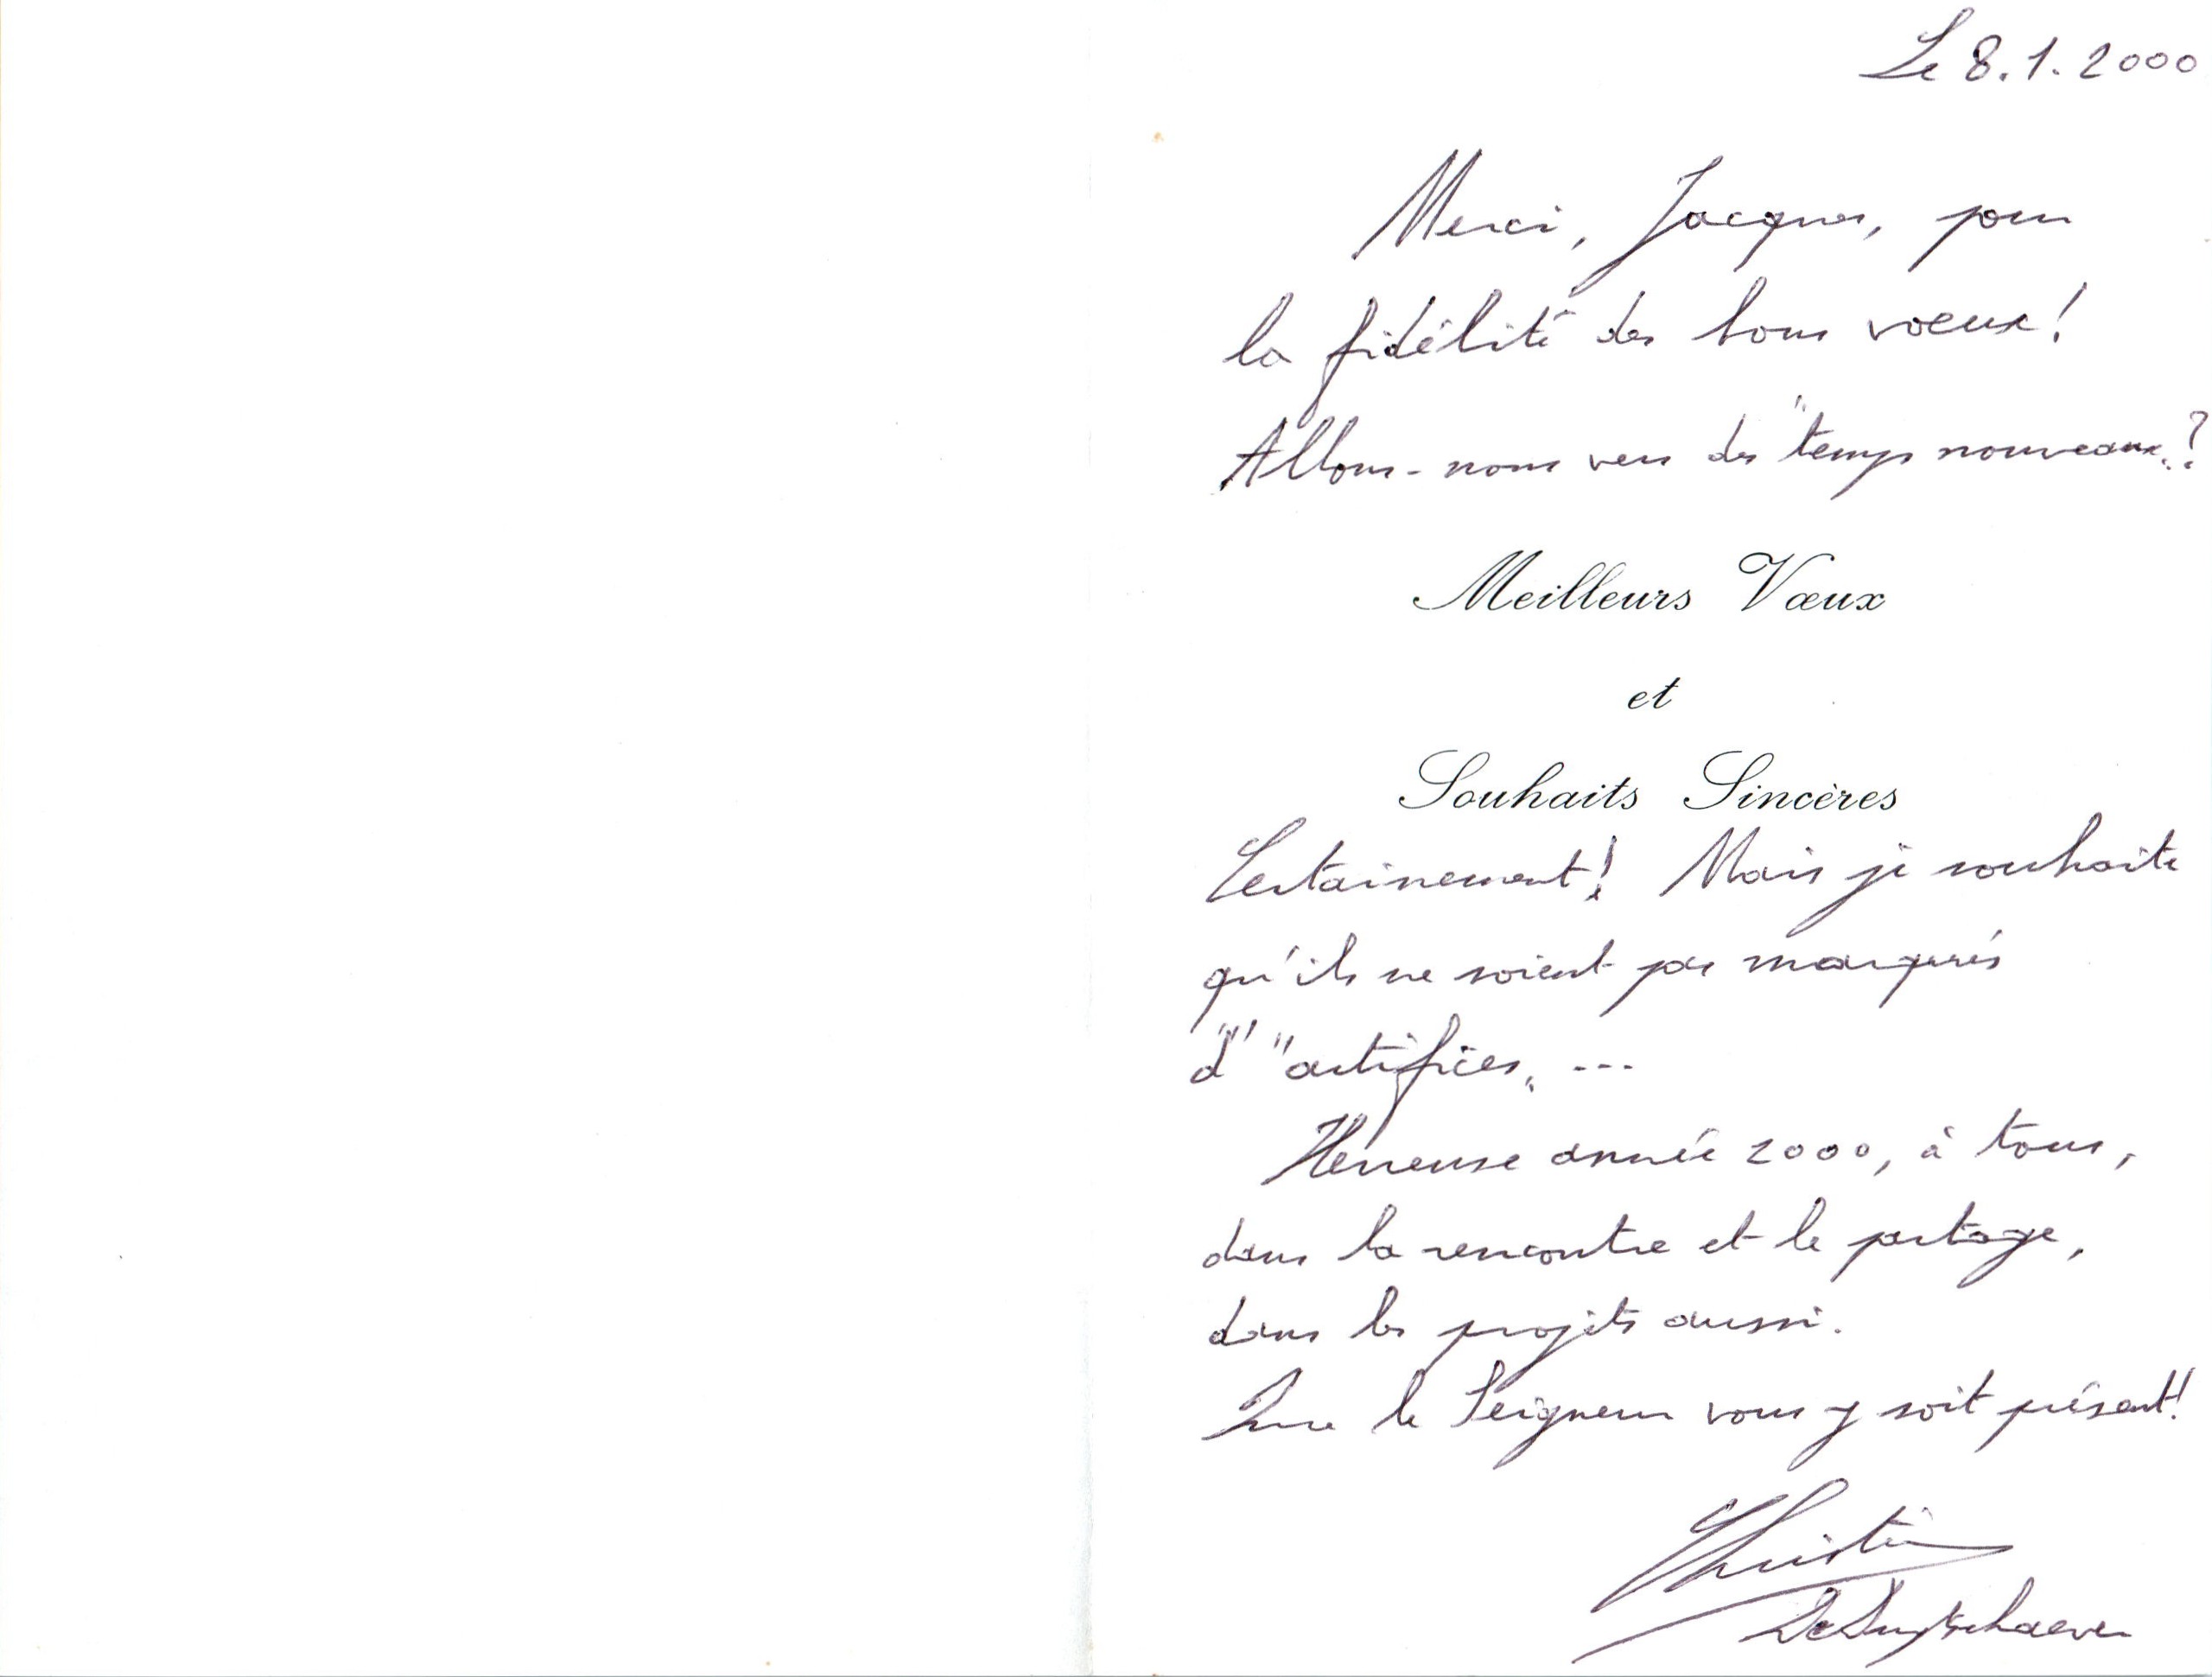 Le 8.1.2000
Merci, Jacques, pour
la fidélité des bons voeux!
Allons-nous vers des "temps nouveaux"?
Meilleurs Vœux
et
Souhaits Sincères
Certainement! Mais je souhaite
qu'ils ne soient pas marqués
d'"artifices" ...
Heureuse année 2000, à tous,
dans la rencontre et le partage,
dans les projets aussi.
Que le Seigneur vous y soit présent!
Christian